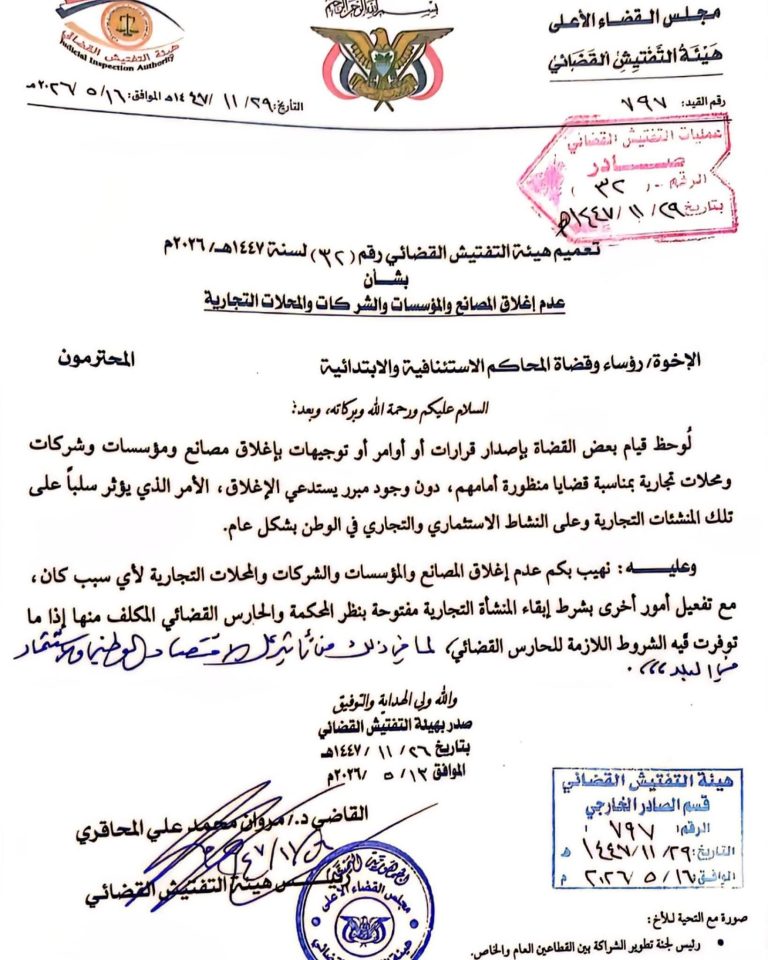 بسم الله الرحمن الرحيم
مجلس القضاء الأعلى
هيئة التفتيش القضائي
هيئة التفتيش القضائي
Judicial Inspection Authority
رقم القيد: ٧٩٧
التاريخ: ٢٩/ ١١ /١٤٤٧هـ الموافق: ١٦/ ٥ /٢٠٢٦مـ
عمليات التفتيش القضائي
صـــادر
الرقم .. ( ٣٢ )
بتاريخ ٢٩/ ١١ /١٤٤٧هـ
تعميم هيئة التفتيش القضائي رقم (٣٢) لسنة ١٤٤٧هـ/٢٠٢٦م
بشــأن
عدم إغلاق المصانع والمؤسسات والشركات والمحلات التجارية
الإخوة/ رؤساء وقضاة المحاكم الاستئنافية والابتدائية المحترمون
السلام عليكم ورحمة الله وبركاته، وبعد:
لُوحظ قيام بعض القضاة بإصدار قرارات أو أوامر أو توجيهات بإغلاق مصانع ومؤسسات وشركات
ومحلات تجارية بمناسبة قضايا منظورة أمامهم، دون وجود مبرر يستدعي الإغلاق، الأمر الذي يؤثر سلباً على
تلك المنشئات التجارية وعلى النشاط الاستثماري والتجاري في الوطن بشكل عام.
وعليـــه: نهيب بكم عدم إغلاق المصانع والمؤسسات والشركات والمحلات التجارية لأي سبب كان،
مع تفعيل أمور أخرى بشرط إبقاء المنشأة التجارية مفتوحة بنظر المحكمة والحارس القضائي المكلف منها إذا ما
توفرت فيه الشروط اللازمة للحارس القضائي، لما في ذلك من تأثير على الاقتصاد الوطني والاستثمار
في البلد،،،.
والله ولي الهداية والتوفيق
صدر بهيئة التفتيش القضائي
بتاريخ ٢٦/ ١١ /١٤٤٧هـ
الموافق ١٣/ ٥ /٢٠٢٦م
القاضي د./ مروان محمد علي المحاقري
رئيس هيئة التفتيش القضائي
مجلس القضاء الأعلى
هيئة التفتيش القضائي
هيئة التفتيش القضائي
قسم الصادر الخارجي
الرقم: ٧٩٧
التاريخ: ٢٩/ ١١ /١٤٤٧هـ
الموافق ١٦/ ٥ /٢٠٢٦م
صورة مع التحية للأخ:
• رئيس لجنة تطوير الشراكة بين القطاعين العام والخاص.